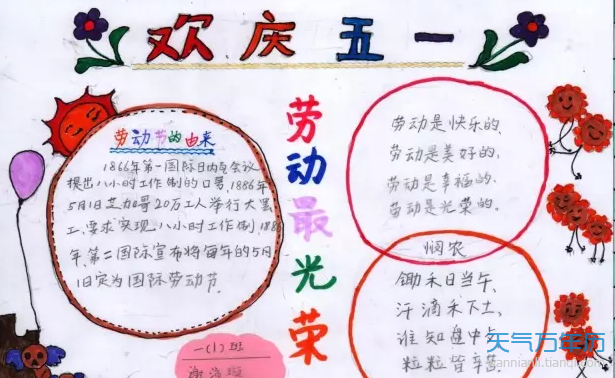 欢庆五一
劳动节的由来
1866年第一国际日内瓦会议
提出八小时工作制的口号,1886年
5月1日芝加哥20万工人举行大罢
工,要求实现八小时工作制,188
年、第二国际宣布将每年的5月
1日定为国际劳动节
劳动最光荣
劳动是快乐的、
劳动是美好的,
劳动是幸福的、
劳动是光荣的。
悯农
锄禾日当午,
汗滴禾下土,
谁知盘中
粒粒皆辛苦
一(1)班
天气万年历
wannianli.tianqi.com